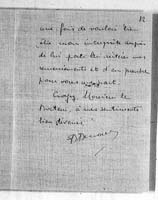 12
une fois de vouloir bien
être mon interprète auprès
de lui pour lui réitérer mes
remerciements et d'en prendre
pour vous
Croyez, Monsieur le
Docteur, à mes sentiments
bien dévoués